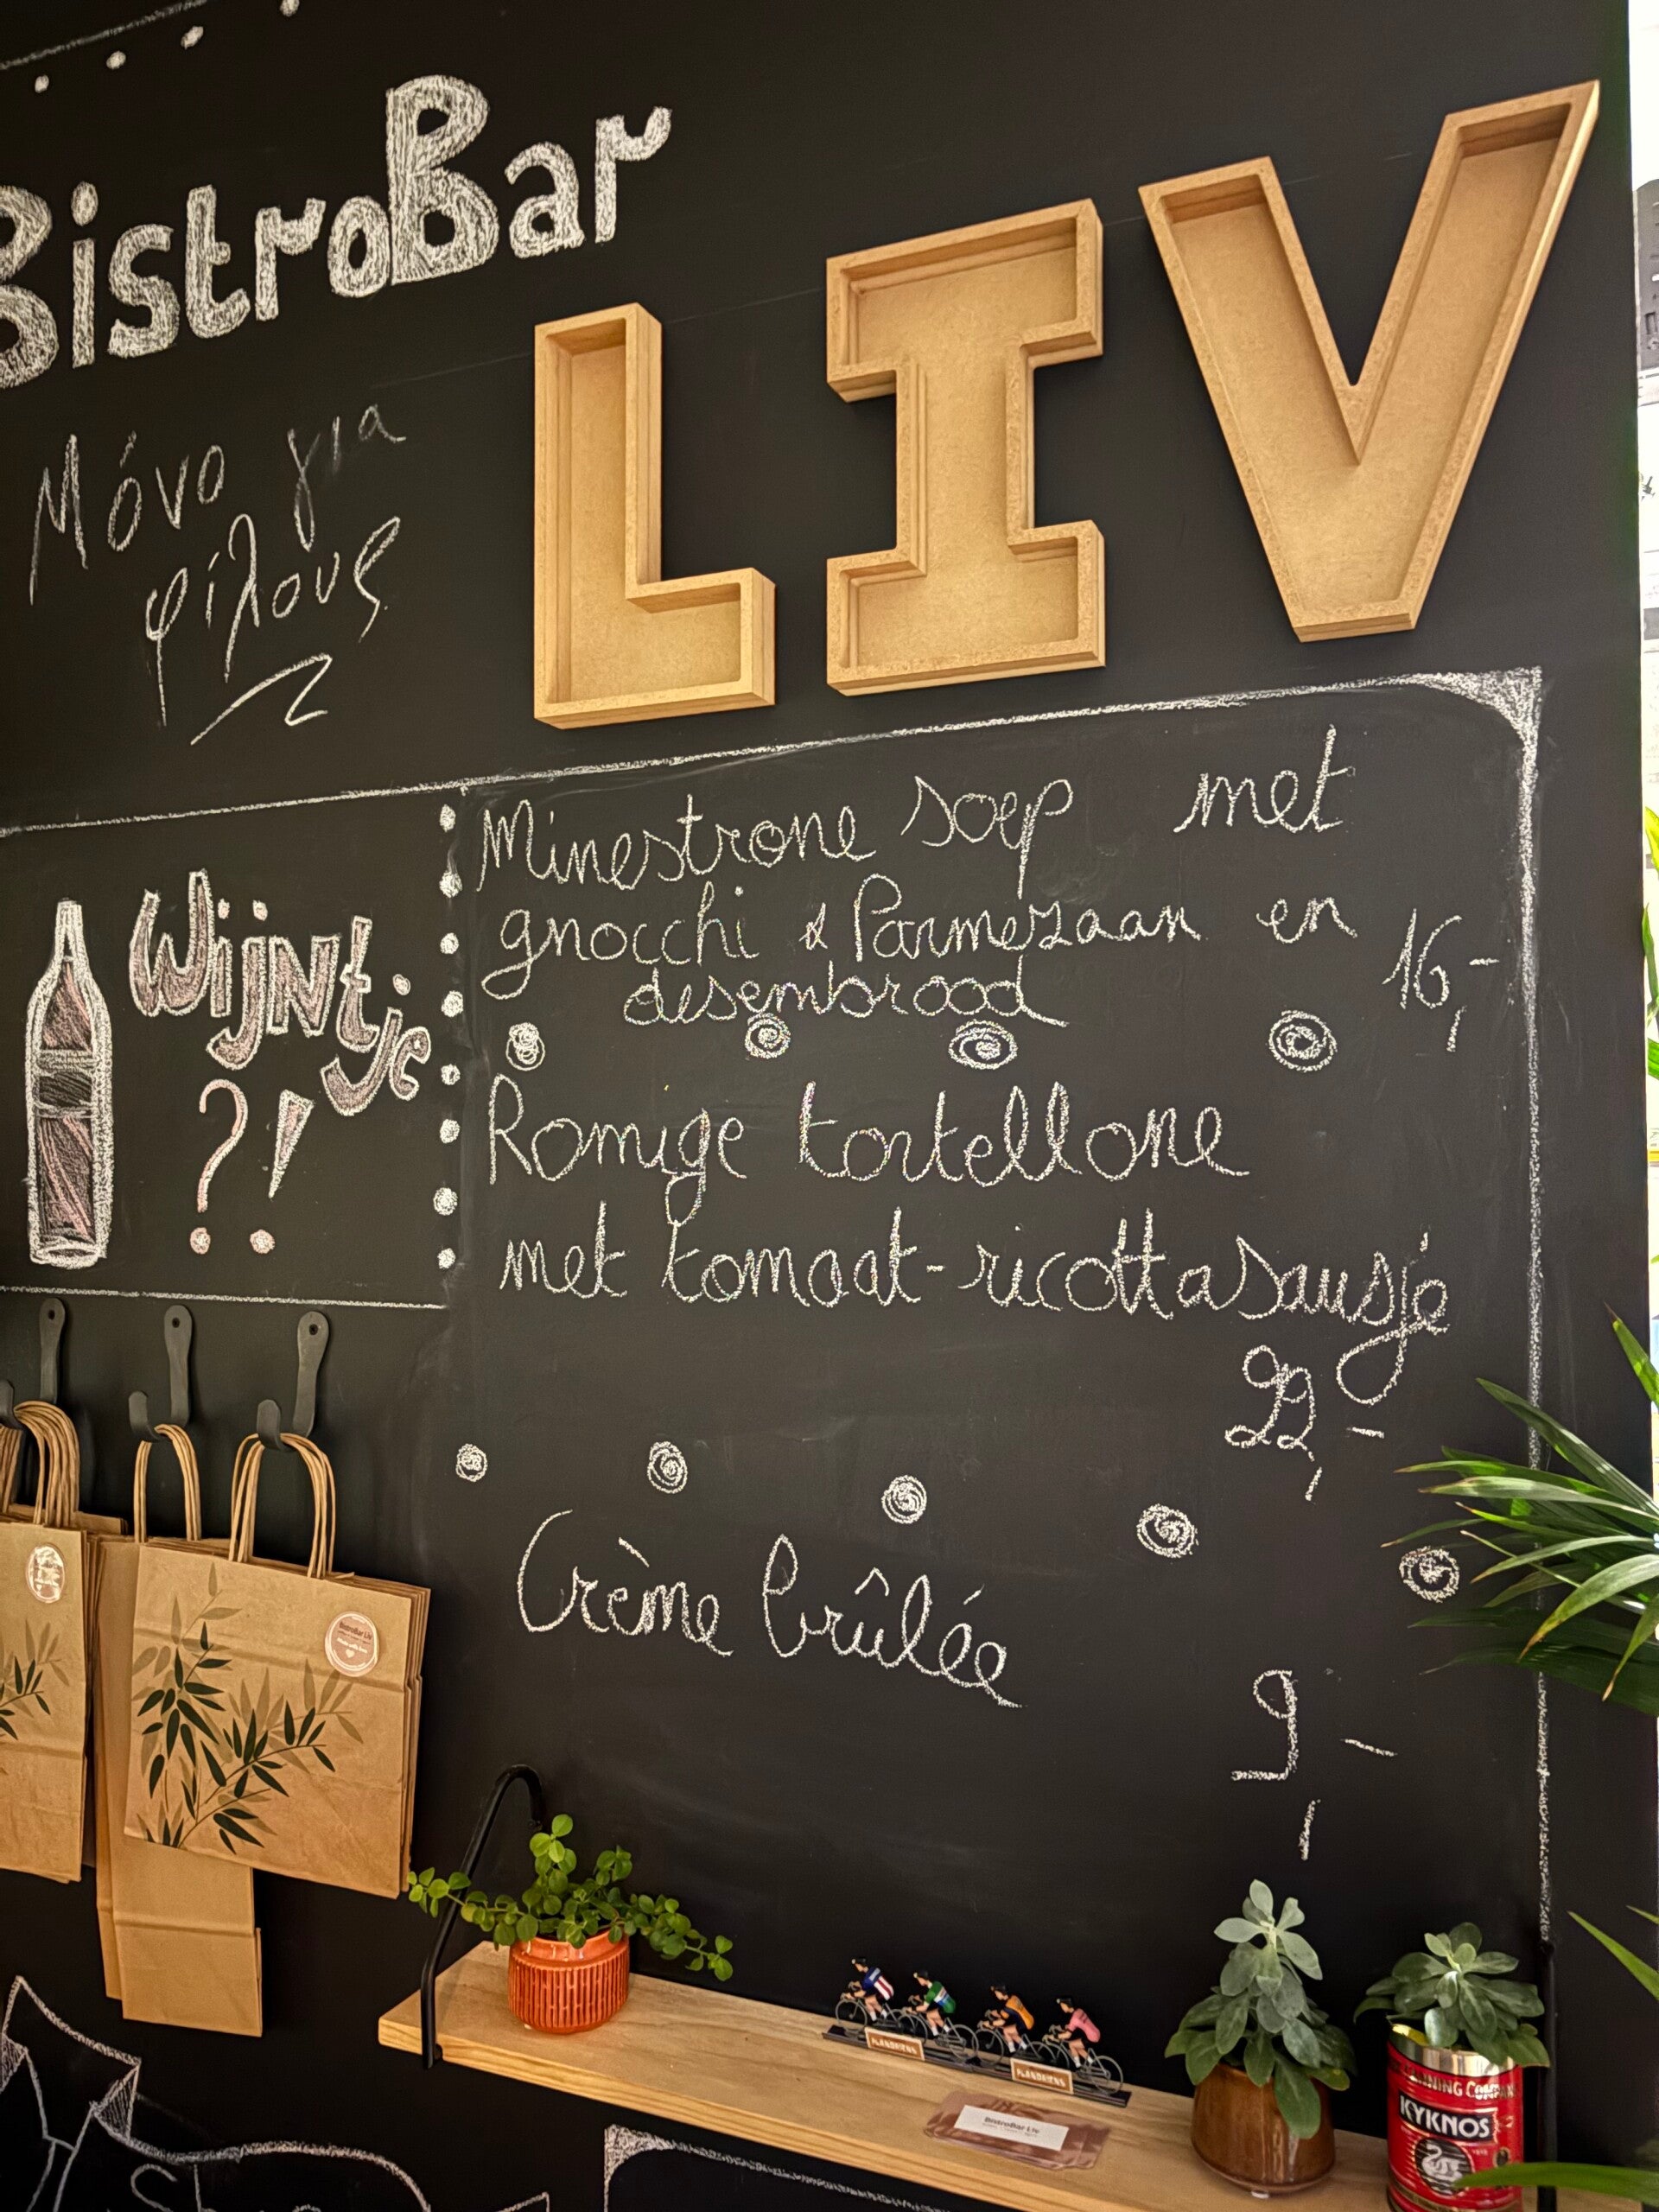 BistroBar
LIV
Μόνο για
φίλους
Wijntje
?!
Minestrone soep met
gnocchi & Parmezaan en
desembrood
16,-
Romige tortellone
met tomaat-ricottasausje
22,-
Crème brûlée
9,-
BistroBar Liv
FLANDRIENS
FLANDRIENS
BistroBar Liv
KYKNOS